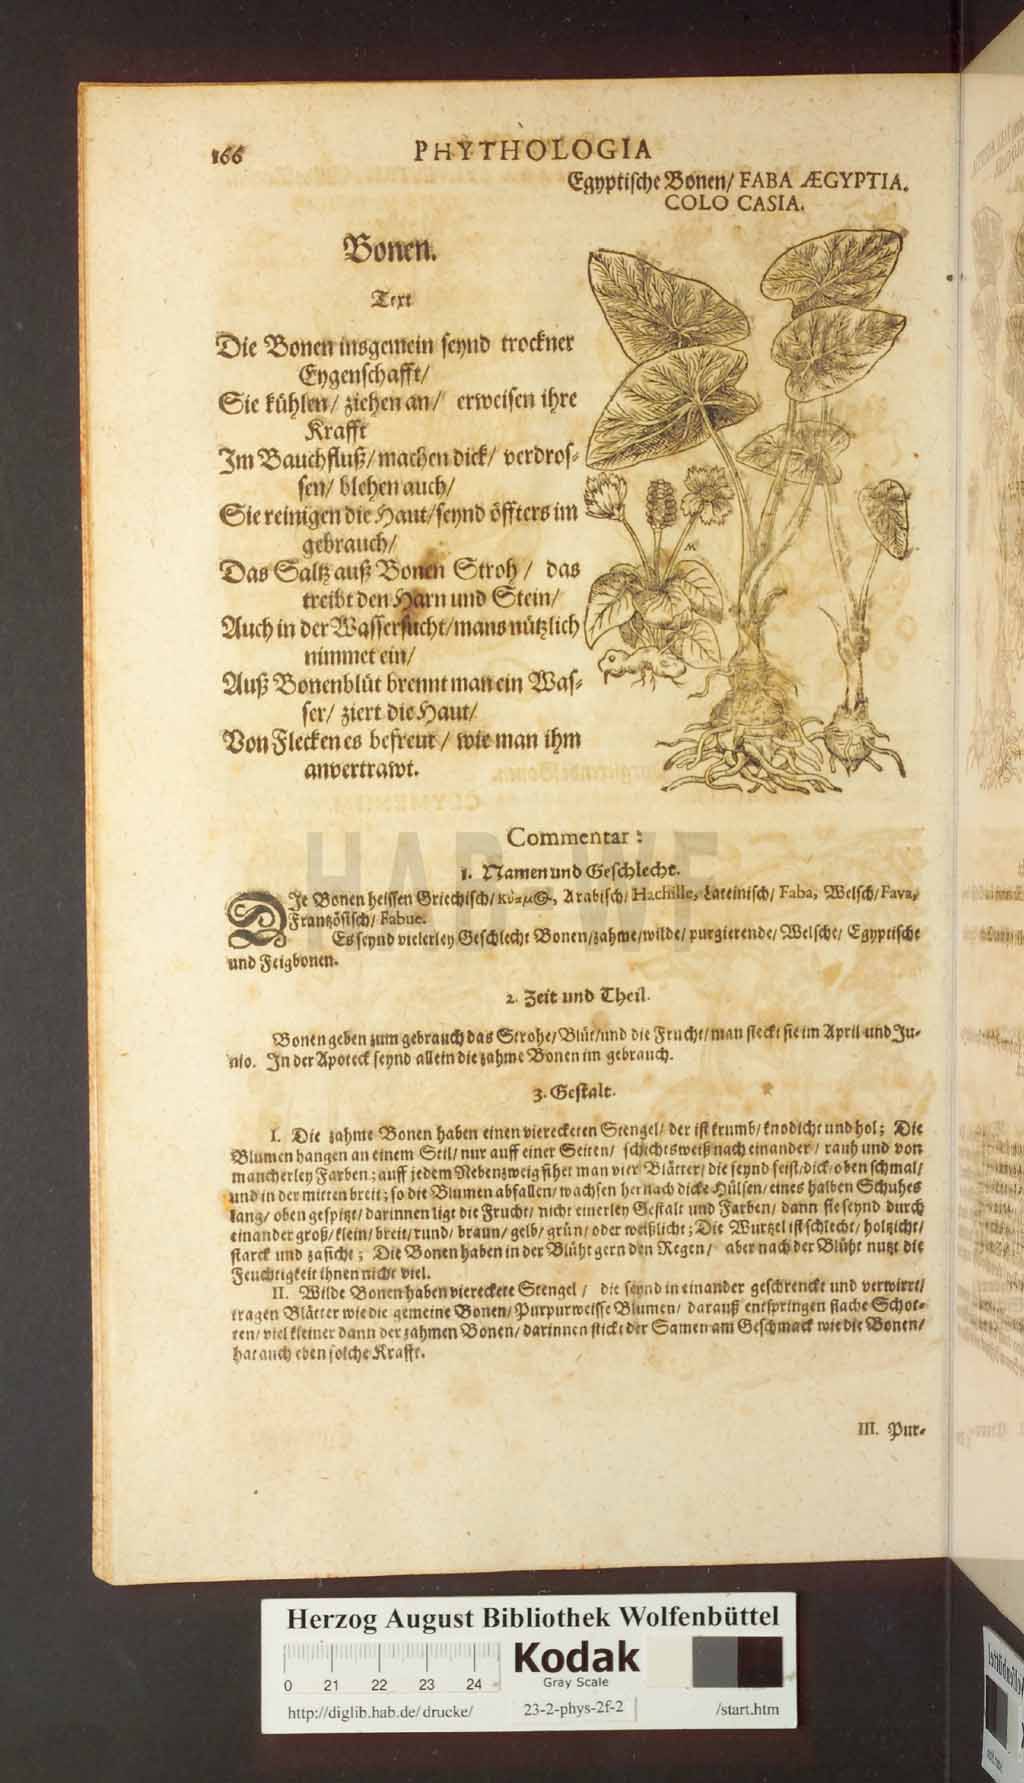 166
PHYTHOLOGIA
Egyptische Bonen/ FABA ÆGYPTIA.
COLO CASIA.
Bonen.
Text
Die Bonen insgemein seynd trockner
Eygenschafft/
Sie kühlen/ ziehen an/ erweisen ihre
Krafft
Im Bauchfluß/ machen dick/ verdros-
sen/ blehen auch/
Sie reinigen die Haut/ seynd öffters im
gebrauch/
Das Saltz auß Bonen Stroh/ das
treibt den Harn und Stein/
Auch in der Wassersucht/ mans nützlich
nimmet ein/
Auß Bonenblüt brennt man ein Was-
ser/ ziert die Haut/
Von Flecken es befreut/ wie man ihm
anvertrawt.
Commentar:
1. Namen und Geschlecht.
DJe Bonen heissen Griechisch/ κύαμ@, Arabisch/ Hachille, Lateinisch/ Faba, Welsch/ Fava,
Frantzösisch/ Fabue.
Es seynd vielerley Geschlecht Bonen/ zahme/ wilde/ purgierende/ Welsche/ Egyptische
und Feigbonen.
2. Zeit und Theil.
Bonen geben zum gebrauch das Strohe/ Blüt/ und die Frucht/ man steckt sie im April und Ju-
nio. In der Apoteck seynd allein die zahme Bonen im gebrauch.
3. Gestalt.
I. Die zahme Bonen haben einen viereckten Stengel/ der ist krumb/ knodicht und hol; Die
Blumen hangen an einem Stil/ nur auff einer Seiten/ schichtsweiß nach einander/ rauh und von
mancherley Farben; auff jedem Nebenzweig sihet man vier Blätter/ die seynd feist/ dick/ oben schmal/
und in der mitten breit; so die Blumen abfallen/ wachsen hernach dicke Hülsen/ eines halben Schuhes
lang/ oben gespitzt/ darinnen ligt die Frucht/ nicht einerley Gestalt und Farben/ dann sie seynd durch
einander groß/ klein/ breit/ rund/ braun/ gelb/ grün/ oder weißlicht; Die Wurtzel ist schlecht/ holtzicht/
starck und zasicht; Die Bonen haben in der Blüht gern den Regen/ aber nach der Blüht nutzt die
Feuchtigkeit ihnen nicht viel.
II. Wilde Bonen haben viereckete Stengel/ die seynd in einander geschrenckt und verwirrt/
tragen Blätter wie die gemeine Bonen/ Purpurweisse Blumen/ darauß entspringen flache Schot-
ten/ viel kleiner dann der zahmen Bonen/ darinnen stickt der Samen am Geschmack wie die Bonen/
hat auch eben solche Krafft.
III. Pur-
HAB WF
Herzog August Bibliothek Wolfenbüttel
0 21 22 23 24
Kodak
Gray Scale
http://diglib.hab.de/drucke/ 23-2-phys-2f-2 /start.htm